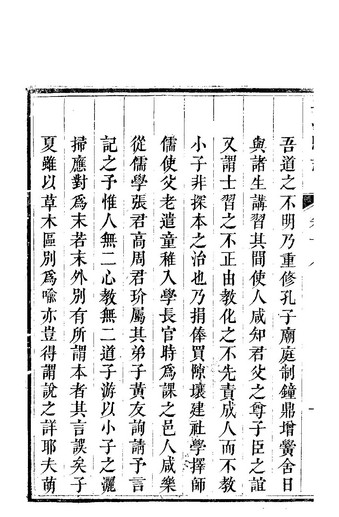 吾道之不明乃重修孔子廟庭制鐘鼎增黌舍日
與諸生講習其間使人咸知君父之尊子臣之誼
又謂士習之不正由教化之不先責成人而不教
小子非探本之治也乃捐俸買隙壤建社學擇師
儒使父老遣童稚入學長官時為課之邑人咸樂
從儒學張君高周君玠屬其弟子黃友詢請予言
記之予惟人無二心教無二道子游以小子之灑
掃應對為末若末外別有所謂本者其言誤矣子
夏雖以草木區別為喻亦豈得謂說之詳耶夫萌